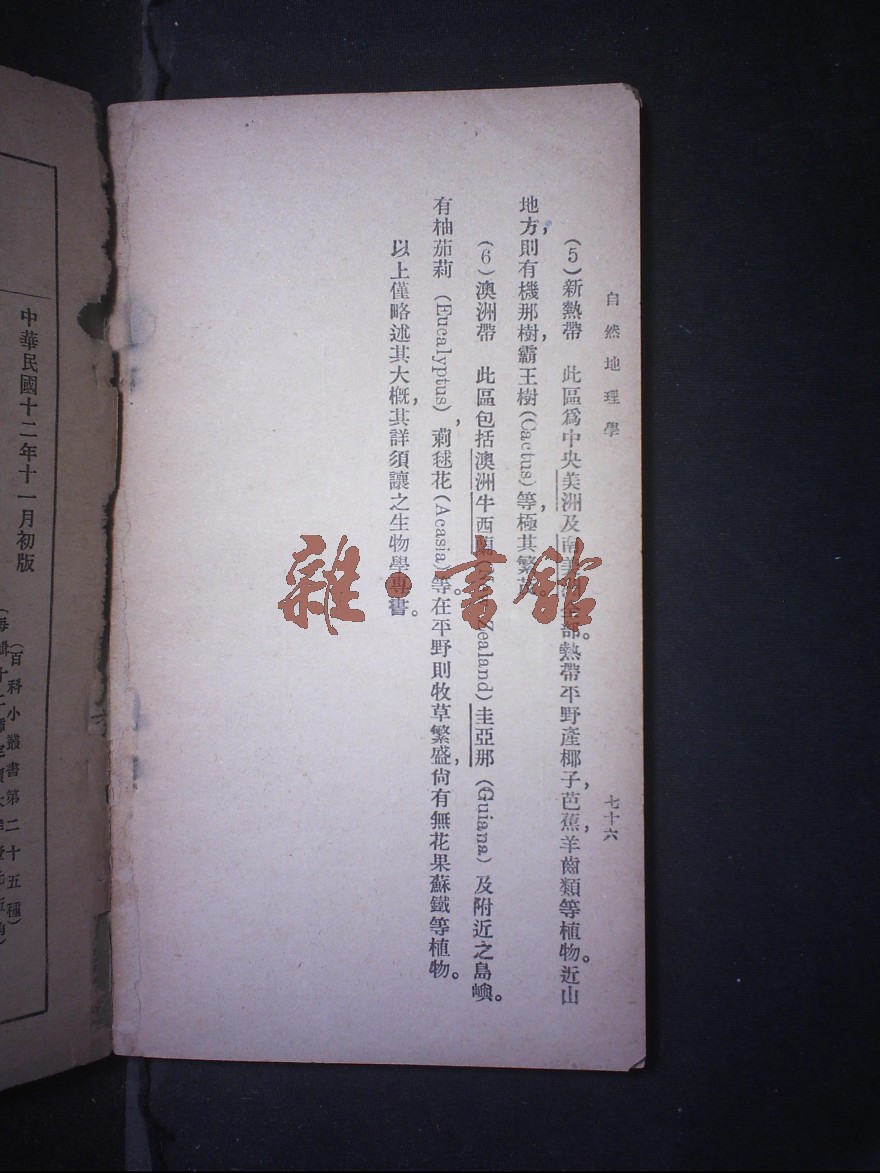 自然地理學
七十六
(5)新熱帶　此區爲中央美洲及南美洲全部。熱帶平野產椰子,芭蕉,羊齒類等植物。近山
地方,則有機那樹,霸王樹(Cactus)等,極其繁
(6)澳洲帶　此區包括澳洲牛西蘭 Zealand)圭亞那(Guiana)及附近之島嶼。
有柚茄莉(Eucalyptus),刺毬花(Acasia)等。在平野則牧草繁盛,尙有無花果蘇鐵等植物。
以上僅略述其大槪,其詳須讓之生物學專書。
雜·書館
中華民國十二年十一月初版
(百科小叢書第二十五種)